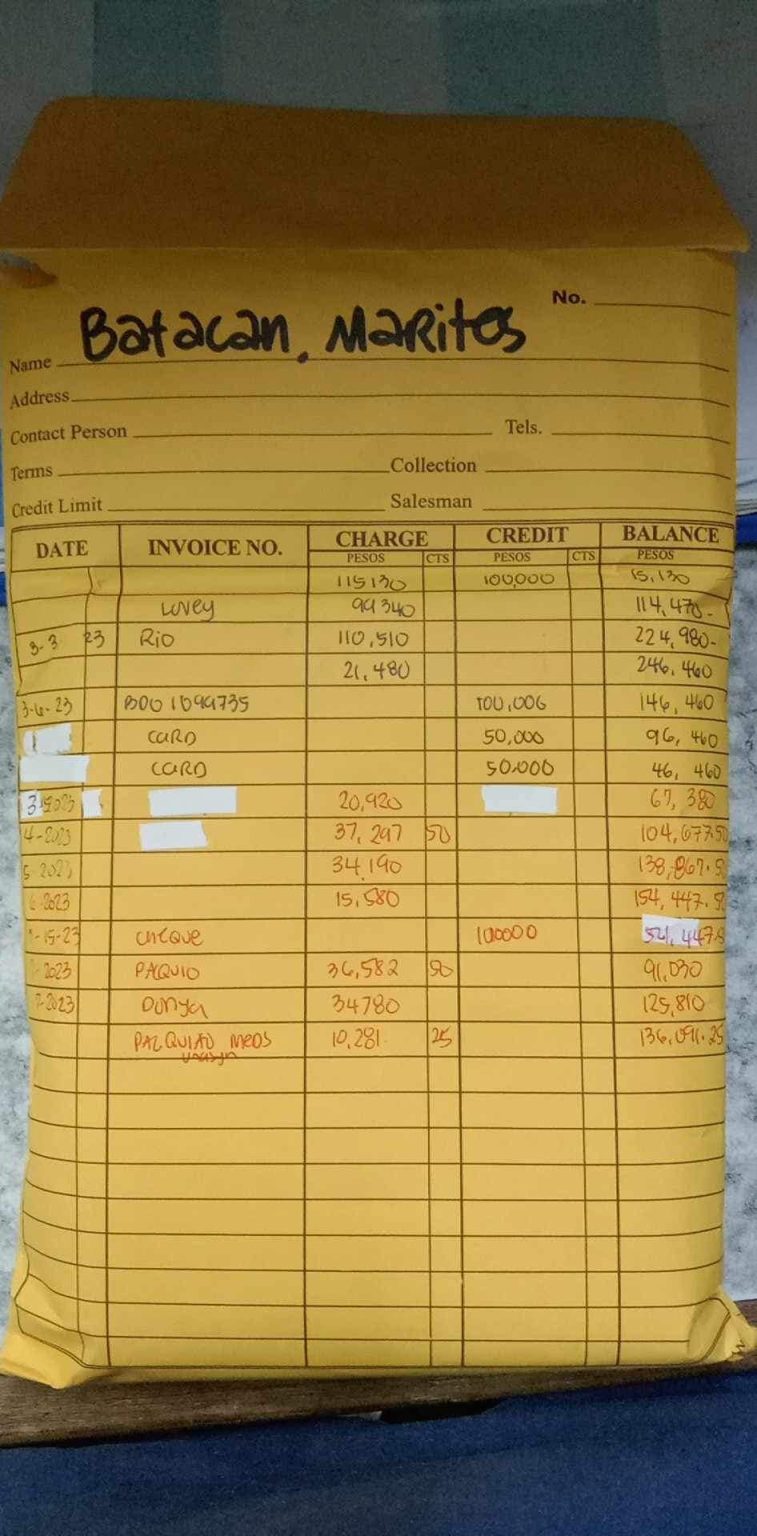 No.
Name Batacan, Marites
Address
Contact Person Tels.
Terms Collection
Credit Limit Salesman
DATE INVOICE NO. CHARGE CREDIT BALANCE
PESOS CTS PESOS CTS PESOS
115130 100,000 15,130
Lovey 99340 114,470-
3-3 23 Rio 110,510 224,980-
21,480 246,460
3-6-23 100,000 146,460
CARD 50,000 96,460
CARD 50,000 46,460
20,920 67,380
4-2023 37,297 50 104,677.50
5-2023 34,190 138,867.5
6-2023 15,580 154,447.5
-15-23 cheque 100000 54,447.5
2023 PAQUIO 36,582 50 91,030
7-2023 Donya 34780 125,810
PALQUIAO MEDS 10,281. 25 136,091.25